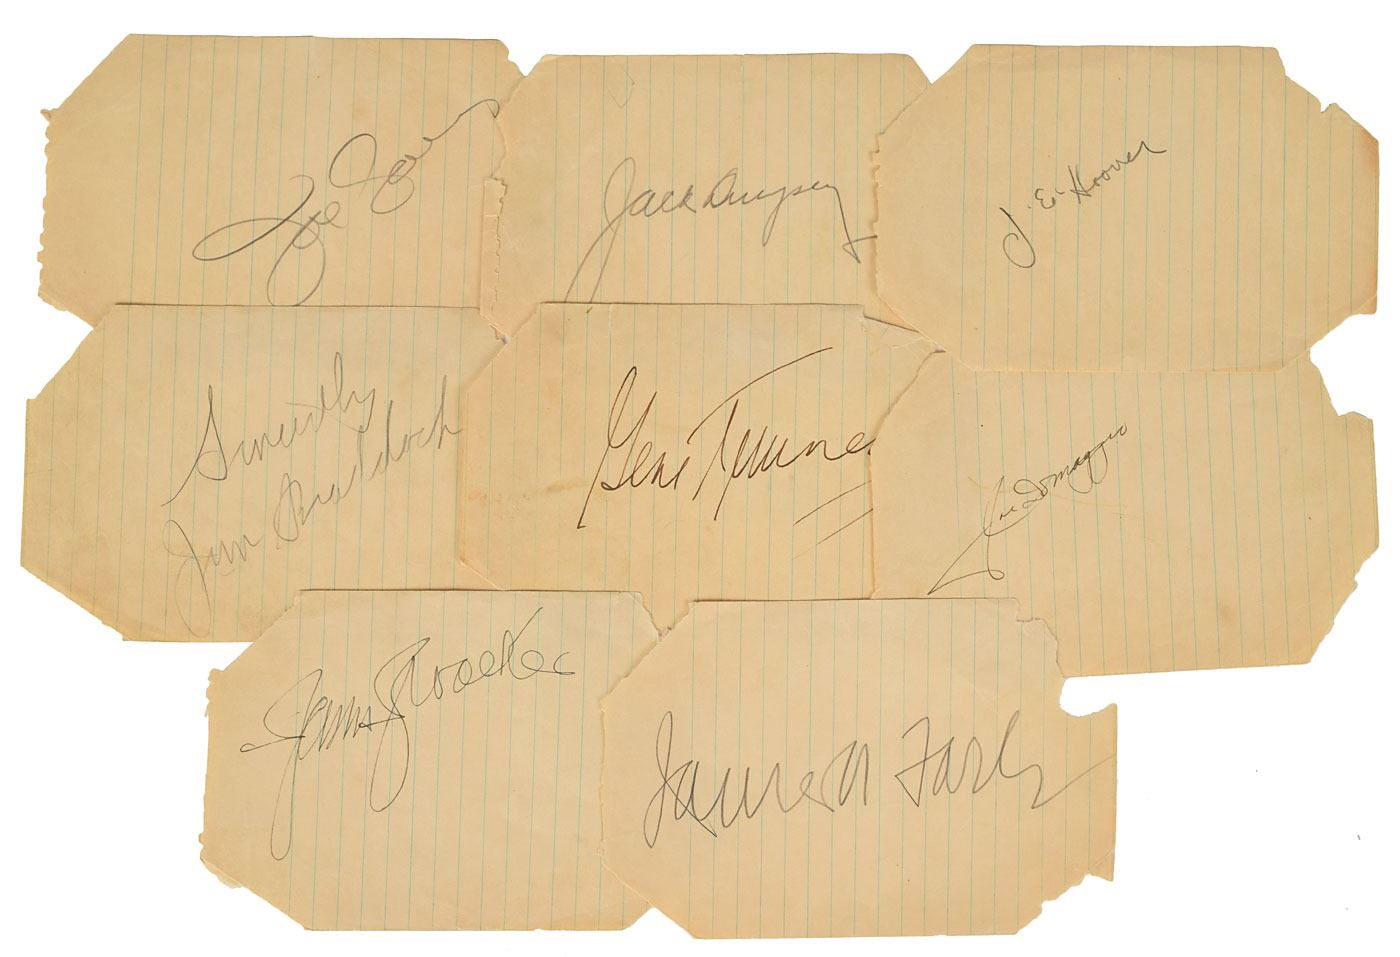 Joe Louis
Jack Dempsey
J. E. Hoover
Sincerely
Jim Braddock
Gene Tunney
Joe DiMaggio
James J Braddock
James A Farley